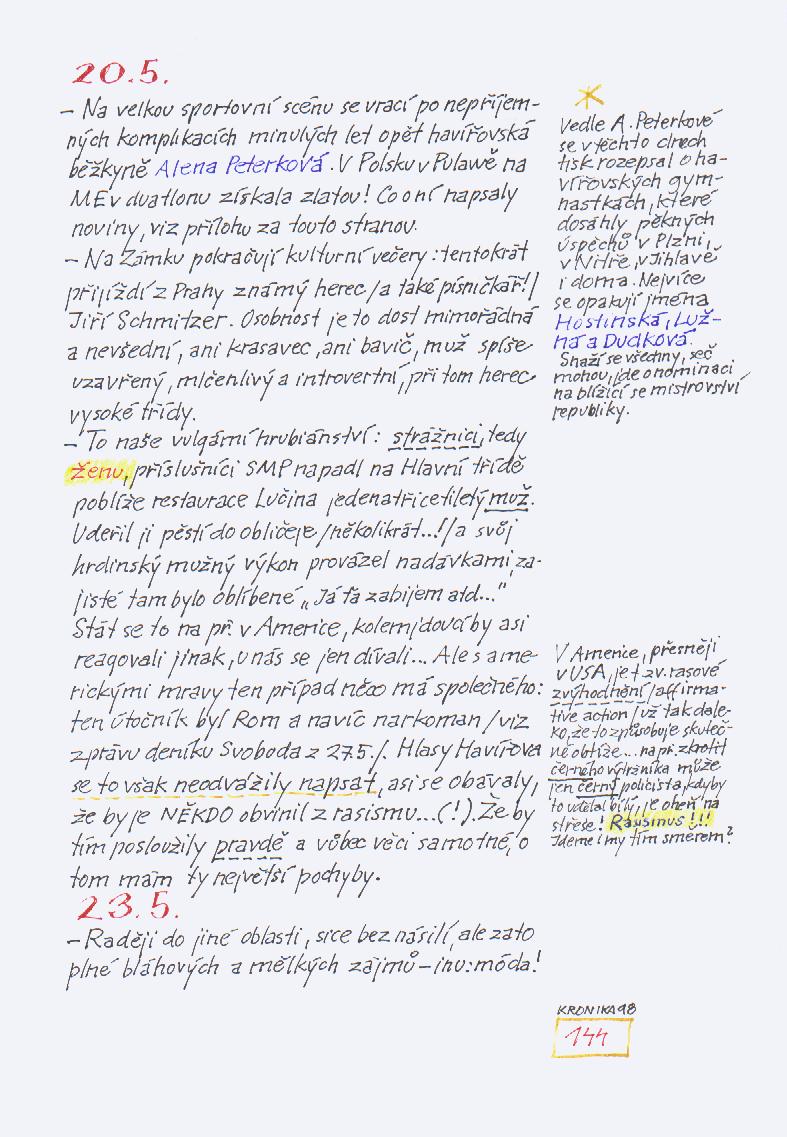 20.5.
– Na velkou sportovní scénu se vrací po nepříjem-
ných komplikacích minulých let opět havířovská
běžkyně Alena Peterková. V Polsku v Pulawě na
ME v duatlonu získala zlatou! Co o ní napsaly
noviny, viz přílohu za touto stranou.
– Na Zámku pokračují kulturní večery: tentokrát
přijíždí z Prahy známý herec /a také písničkář!/
Jiří Schmitzer. Osobnost je to dost mimořádná
a nevšední, ani krasavec, ani bavič, muž spíše
uzavřený, mlčenlivý a introvertní, při tom herec
vysoké třídy.
– To naše vulgární hrubiánství: strážnici, tedy
ženu, příslušnici SMP napadl na Hlavní třídě
poblíže restaurace Lučina jedenatřicetiletý muž.
Udeřil ji pěstí do obličeje /několikrát...!/ a svůj
hrdinský mužný výkon provázel nadávkami, za-
jisté tam bylo oblíbené „Já ťa zabijem atd..."
Stát se to na př. v Americe, kolemjdoucí by asi
reagovali jinak, u nás se jen dívali... Ale s ame-
rickými mravy ten případ něco má společného:
ten útočník byl Rom a navíc narkoman /viz
zprávu deníku Svoboda z 27.5./. Hlasy Havířova
se to však neodvážily napsat, asi se obávaly,
že by je NĚKDO obvinil z rasismu...(!). Že by
tím posloužily pravdě a vůbec věci samotné, o
tom mám ty největší pochyby.
23.5.
– Raději do jiné oblasti, sice bez násilí, ale zato
plné bláhových a mělkých zájmů – inu: móda!
Vedle A. Peterkové
se v těchto dnech
tisk rozepsal o ha-
vířovských gym-
nastkách, které
dosáhly pěkných
úspěchů v Plzni,
v Nitře, v Jihlavě
i doma. Nejvíce
se opakují jména
Hostinská, Luž-
ná a Dudková.
Snaží se všechny, seč
mohou, jde o nominaci
na blížící se mistrovství
republiky.
V Americe, přesněji
v USA, je tzv. rasové
zvýhodnění /affirma-
tive action/ už tak dale-
ko, že to způsobuje skuteč-
né obtíže... např. zkrotit
černého výtržníka může
jen černý policista, kdyby
to udělal bílý, je oheň na
střeše! Rasismus!!!
Jdeme i my tím směrem?
KRONIKA 98
144